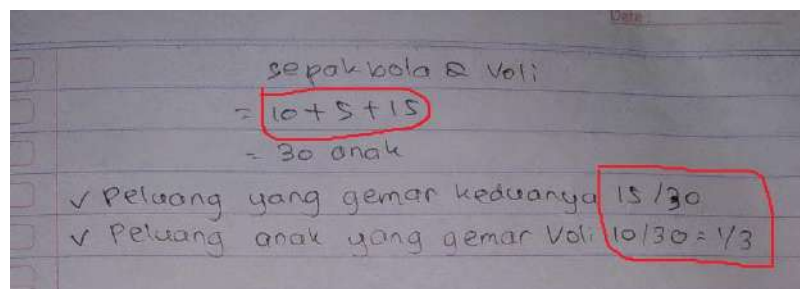 Date:
sepak bola & Voli
= 10 + 5 + 15
= 30 anak
✓ Peluang yang gemar keduanya 15/30
✓ Peluang anak yang gemar Voli 10/30 = 1/3